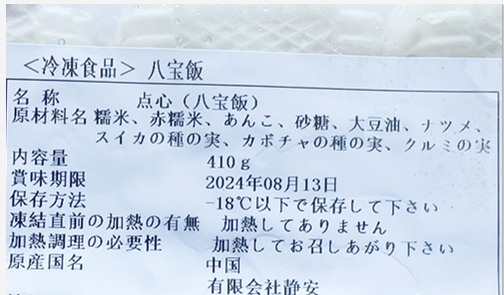 ＜冷凍食品＞ 八宝飯
名 称 点心（八宝飯）
原材料名 糯米、赤糯米、あんこ、砂糖、大豆油、ナツメ、
スイカの種の実、カボチャの種の実、クルミの実
内容量 410ｇ
賞味期限 2024年08月13日
保存方法 -18℃以下で保存して下さい
凍結直前の加熱の有無 加熱してありません
加熱調理の必要性 加熱してお召しあがり下さい
原産国名 中国
有限会社静安